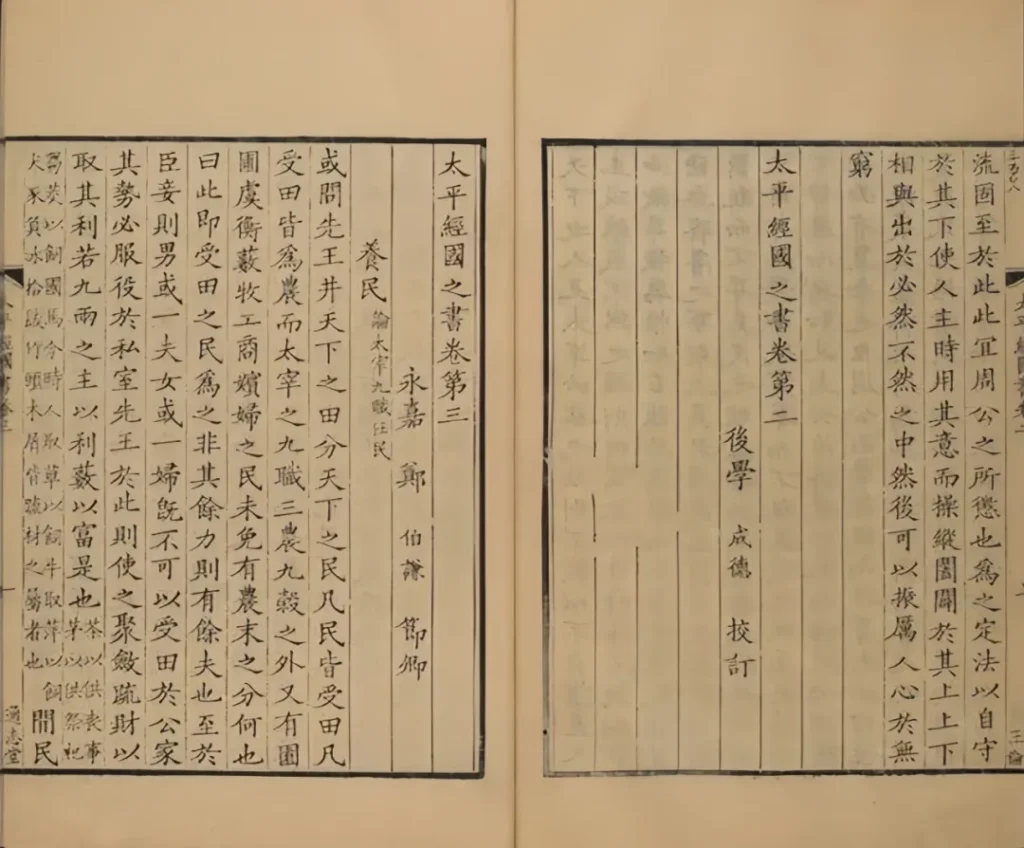 流固至於此此冝周公之所懲也爲之定法以自守
於其下使人主時用其意而操縱闔闢於其上上下
相與出於必然不然之中然後可以振厲人心於無
窮
太平經國之書卷第二
後學 成德 校訂
太平經國之書卷第三
永嘉 鄭 伯謙 節卿
養民 論太宰九職任民
或問先王井天下之田分天下之民凡民皆受田凡
受田皆爲農而太宰之九職三農九穀之外又有園
圃虞衡藪牧工商嬪婦之民未免有農末之分何也
曰此即受田之民爲之非其餘力則有餘夫也至於
臣妾則男或一夫女或一婦旣不可以受田於公家
其勢必服役於私室先王於此則使之聚斂疏財以
取其利若九兩之主以利藪以富是也 荼以供喪事
茅以供祭祀
芻茭以飼國馬今時人取草以飼牛取萍以飼
犬豕負冰拾
竹頭木屑皆疏材之
者也 閒民
通志堂